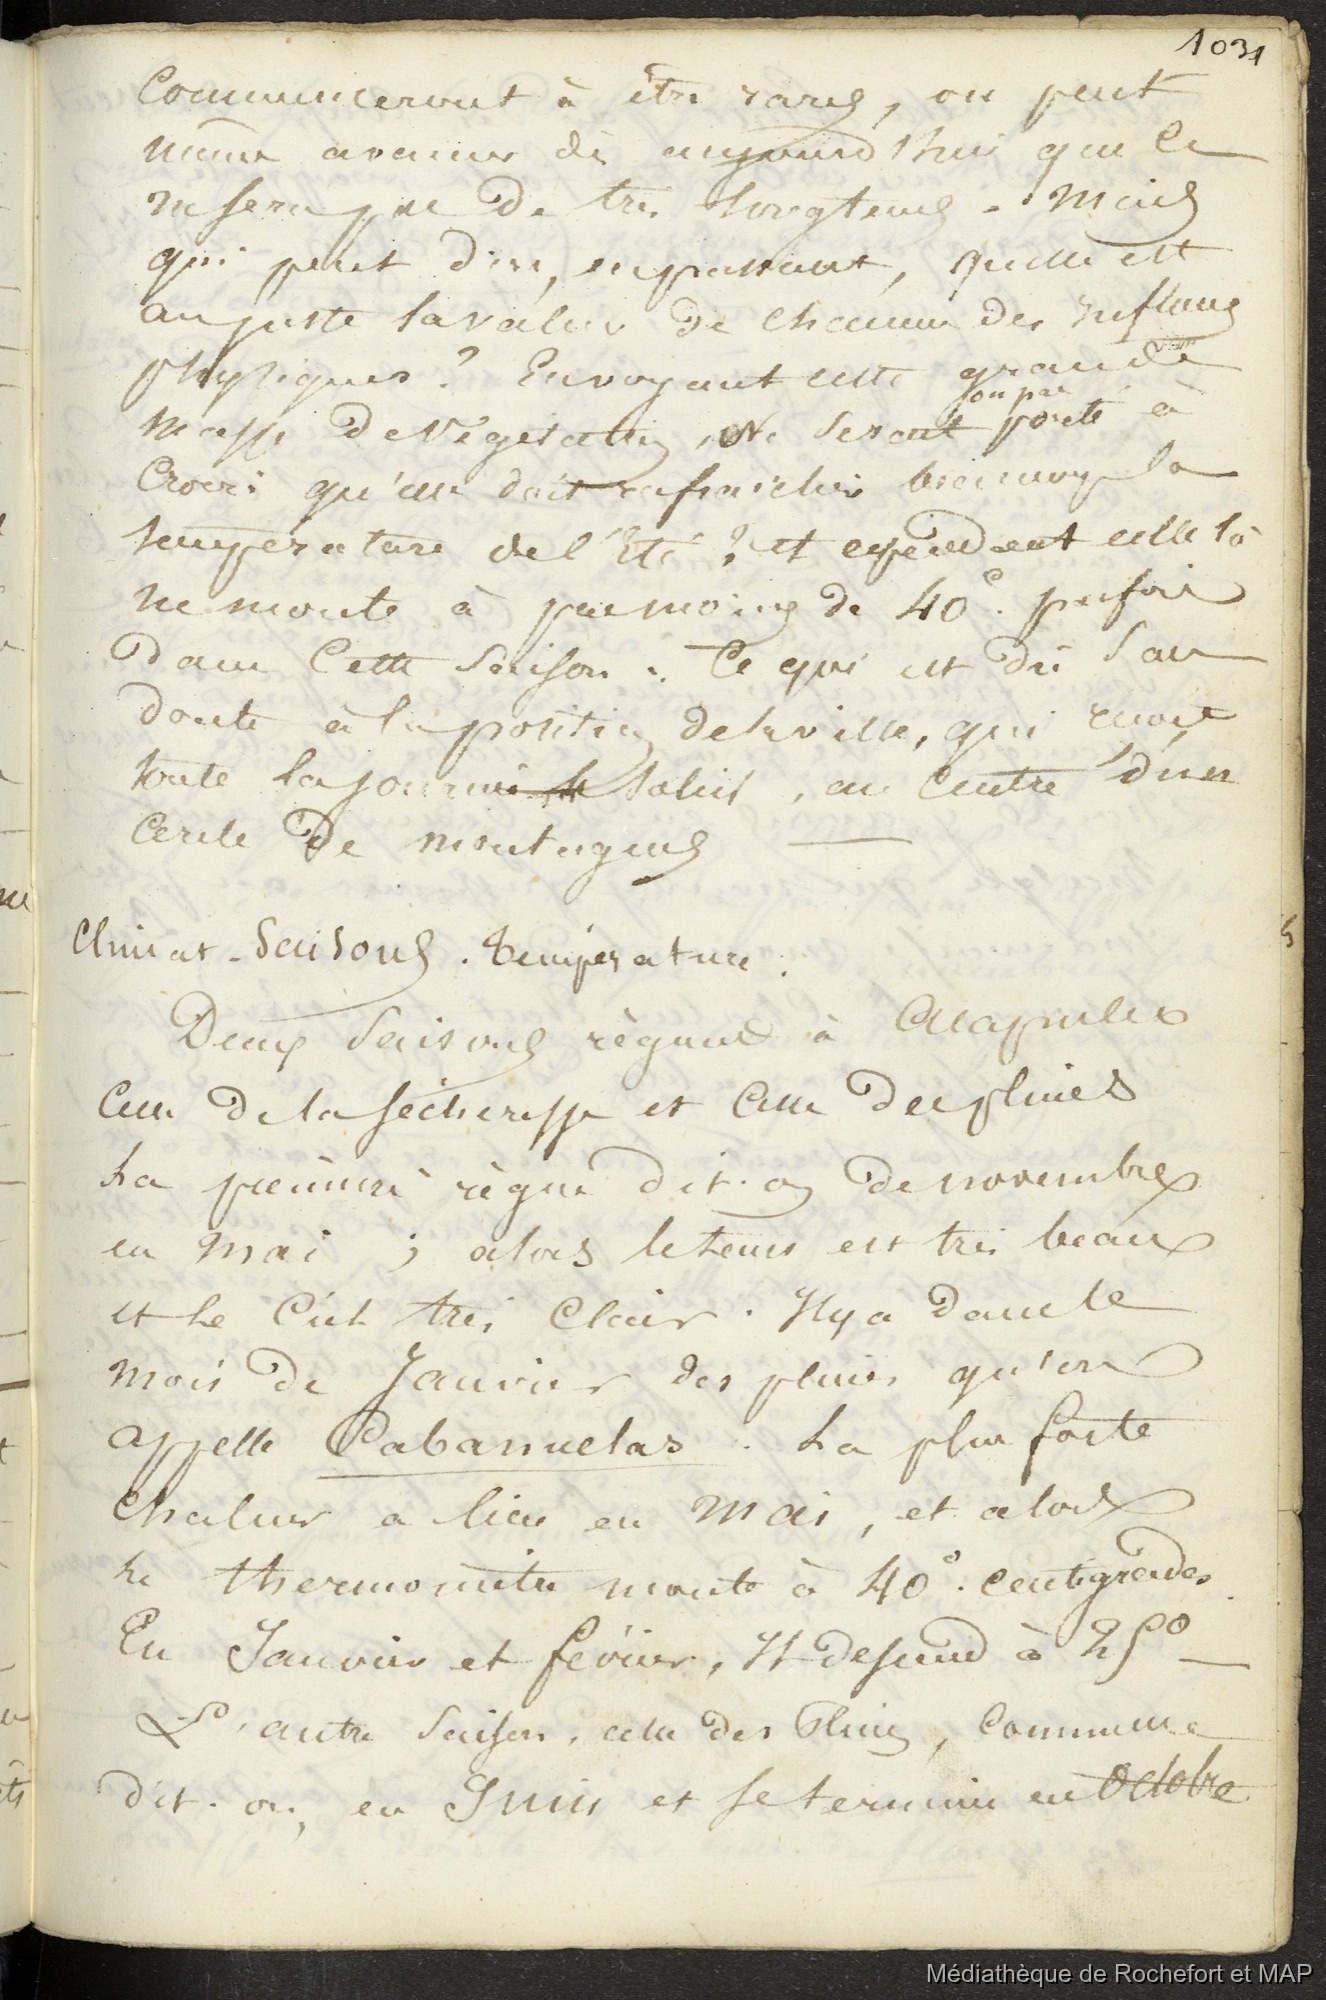 1031
Commenceront à être rares, on peut
même avancer dès aujourd'hui que ce
ne sera pas de très longtems. Mais
qui peut dire, en passant, quelle est
au juste la valeur de chacune des influences
physiques ? En voyant cette grande
masse de végétation, ne serait on pas porté à
croire qu'elle doit rafraichir beaucoup la
température de l'Été ? et cependant celle là
ne monte à pas moins de 40°. parfois
dans Cette Saison. Ce qui est dû sans
doute à la position de la ville, qui reçoit
toute la journée le soleil, au centre d'un
Cercle de montagnes —
Climat - Saisons. Température.
Deux Saisons règnent à Acapulco
Celle de la sécheresse et Celle des pluies
La première règne dit-on de novembre
en Mai ; alors le tems est très beau
et le Ciel très Clair. Il y a dans le
mois de Janvier des pluies qu'on
appelle Cabanuelas. La plus forte
chaleur a lieu en Mai, et alors
le thermomètre monte à 40°. centigrades.
En Janvier et février, Il descend à 25° —
L'autre Saison, celle des Pluies, Commence
dit-on, en Juin et se termine en Octobre
Médiathèque de Rochefort et MAP